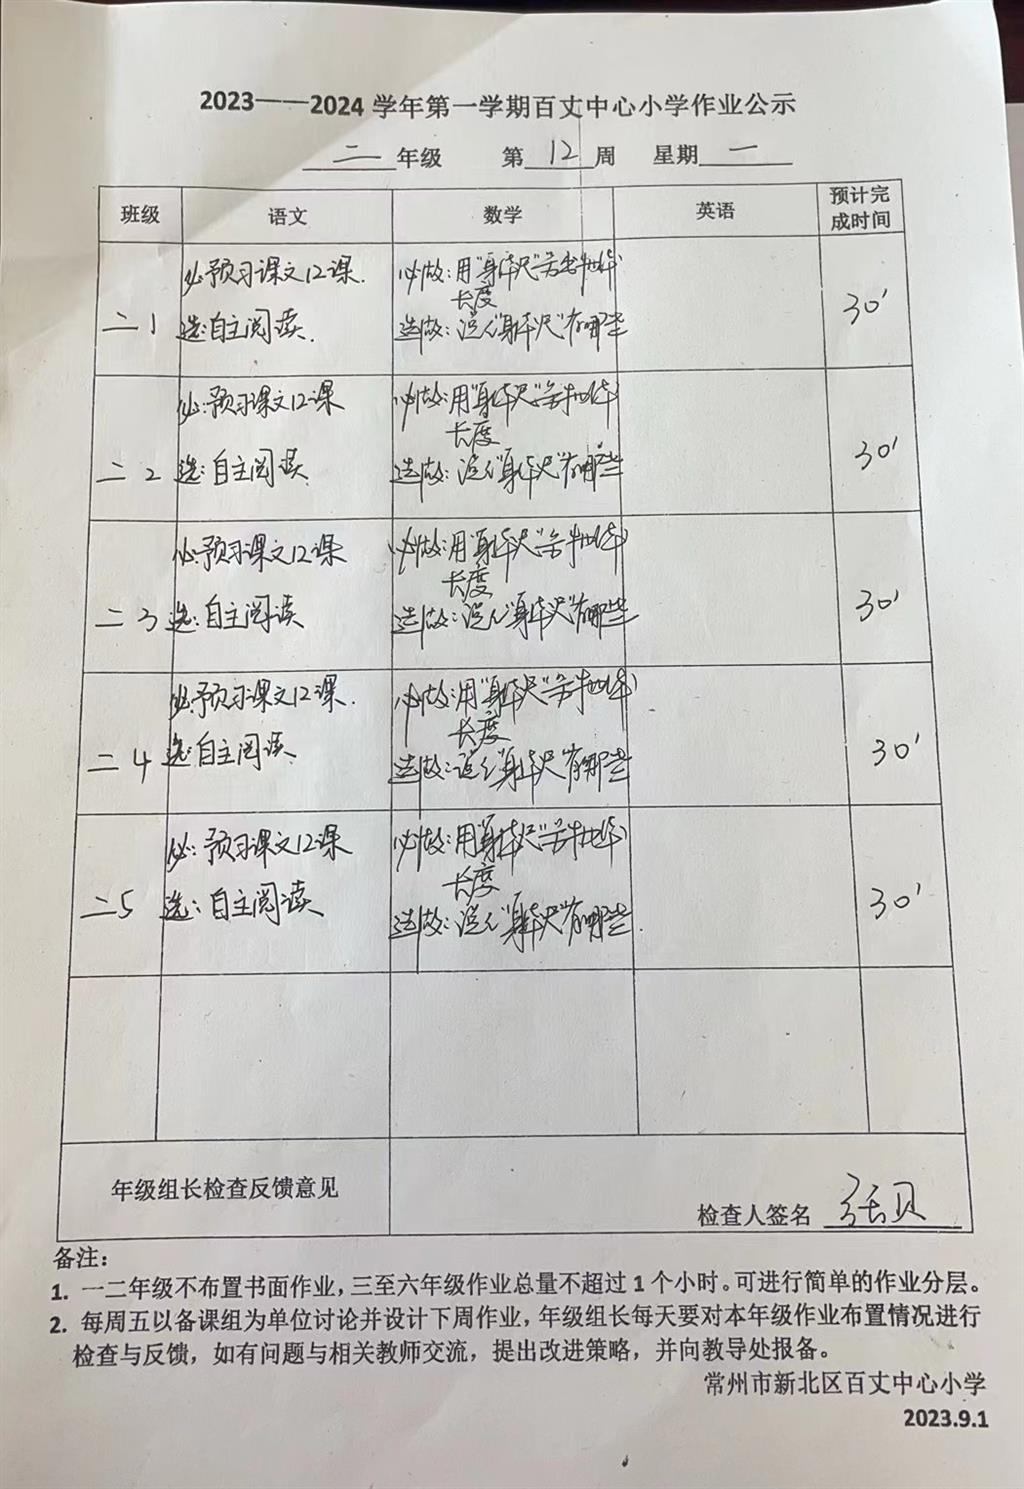 2023——2024 学年第一学期百丈中心小学作业公示
二 年级 第 12 周 星期 一
班级 语文 数学 英语 预计完成时间
必:预习课文12课. 必做:用"身体尺"
长度
二1 选:自主阅读. 选做:说说"身体尺"有哪些 30'
必:预习课文12课 必做:用"身体尺"
长度
二2 选:自主阅读. 选做:说说"身体尺"有哪些 30'
必:预习课文12课 必做:用"身体尺"
长度
二3 选:自主阅读 选做:说说"身体尺"有哪些 30'
必:预习课文12课. 必做:用"身体尺"
长度
二4 选:自主阅读. 选做:说说"身体尺"有哪些 30'
必:预习课文12课 必做:用"身体尺"
长度
二5 选:自主阅读 选做:说说"身体尺"有哪些. 30'
年级组长检查反馈意见
检查人签名 张贝
备注:
1. 一二年级不布置书面作业,三至六年级作业总量不超过1个小时。可进行简单的作业分层。
2. 每周五以备课组为单位讨论并设计下周作业,年级组长每天要对本年级作业布置情况进行
检查与反馈,如有问题与相关教师交流,提出改进策略,并向教导处报备。
常州市新北区百丈中心小学
2023.9.1